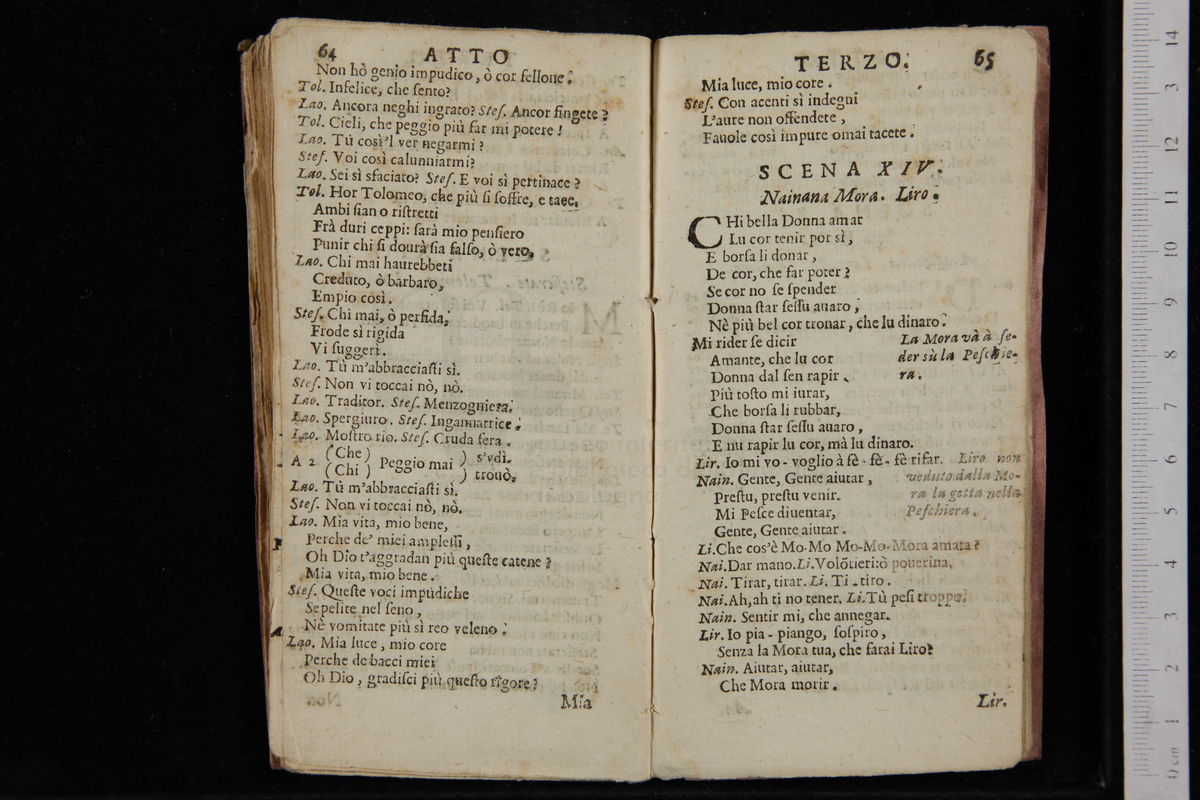 64 ATTO
Non hò genio impudico, ò cor fellone.
Tol. Infelice, che ſento?
Lao. Ancora neghi ingrato? Steſ. Ancor fingete?
Tol. Cieli, che peggio più far mi potere!
Lao. Tù così'l ver negarmi?
Steſ. Voi così calunniarmi?
Lao. Sei sì sfaciato? Steſ. E voi sì pertinace?
Tol. Hor Tolomeo, che più ſi ſoffre, e tace.
Ambi ſian o riſtretti
Frà duri ceppi: ſarà mio penſiero
Punir chi ſi dourà ſia falſo, ò vero.
Lao. Chi mai haurebbeti
Creduto, ò barbaro,
Empio così.
Steſ. Chi mai, ò perfida,
Frode sì rigida
Vi ſuggerì.
Lao. Tù m'abbracciaſti sì.
Steſ. Non vi toccai nò, nò.
Lao. Traditor. Steſ. Menzogniera.
Lao. Spergiuro. Steſ. Ingannatrice.
Lao. Moſtro rio. Steſ. Cruda fera.
A 2 (Che) (Chi) Peggio mai ) s'vdì. ) trouò.
Lao. Tù m'abbracciaſti sì.
Steſ. Non vi toccai nò, nò.
Lao. Mia vita, mio bene,
Perche de' miei ampleſſi,
Oh Dio t'aggradan più queſte catene?
Mia vita, mio bene.
Steſ. Queſte voci impudiche
Sepelite nel ſeno,
Nè vomitate più sì reo veleno.
Lao. Mia luce, mio core
Perche de bacci miei
Oh Dio, gradiſci più queſto rigore?
Mia
TERZO. 65
Mia luce, mio core.
Steſ. Con acenti sì indegni
L'aure non offendete,
Fauole così impure omai tacete.
SCENA XIV.
Nainana Mora. Liro.
CHi bella Donna amar
Lu cor tenir por sì,
E borſa li donar,
De cor, che far poter?
Se cor no ſe ſpender
Donna ſtar ſeſſu auaro,
Nè più bel cor tronar, che lu dinaro.
Mi rider ſe dicir
La Mora và à ſe-
Amante, che lu cor
der sù la Peſchie-
Donna dal ſen rapir,
ra.
Più toſto mi iurar,
Che borſa li rubbar,
Donna ſtar ſeſſu auaro,
E nu rapir lu cor, mà lu dinaro.
Lir. Io mi vo - voglio à fè - fè - fè rifar.
Liro non
Nain. Gente, Gente aiutar,
veduto dalla Mo-
Preſtu, preſtu venir.
ra la getta nella
Mi Peſce diuentar,
Peſchiera.
Gente, Gente aiutar.
Li. Che cos'è Mo-Mo Mo-Mo-Mora amata?
Nai. Dar mano. Li. Volōtieri: ò pouerina.
Nai. Tirar, tirar. Li. Ti - tiro.
Nai. Ah, ah ti no tener. Li. Tù peſi troppo.
Nain. Sentir mi, che annegar.
Lir. Io pia - piango, ſoſpiro,
Senza la Mora tua, che farai Liro?
Nain. Aiutar, aiutar,
Che Mora morir.
Lir.